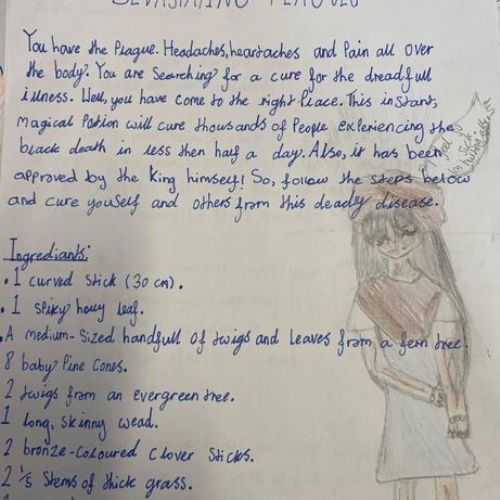 DEVASTATING PLAGUES
You have the Plague. Headaches, heartaches and Pain all over
the body? You are searching for a cure for the dreadfull
illness. Well, you have come to the right Place. This instant,
magical Potion will cure thousands of People experiencing the
black death in less then half a day. Also, it has been
approved by the King himself! So, follow the steps below
and cure youself and others from this deadly disease.
Ingrediants:
• 1 curved stick (30 cm).
• 1 spiky holly leaf.
• A medium-sized handfull of twigs and leaves from a fern tree.
8 baby Pine cones.
2 twigs from an evergreen tree.
1 long, skinny wead.
2 bronze-coloured clover sticks.
2 1/5 stems of thick grass.